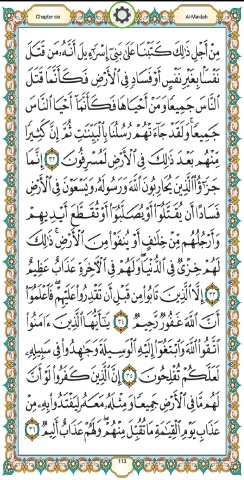 Chapter six
Al-Maidah
مِنْ أَجْلِ ذَٰلِكَ كَتَبْنَا عَلَىٰ بَنِىٓ إِسْرَٰٓءِيلَ أَنَّهُۥ مَن قَتَلَ
نَفْسًۢا بِغَيْرِ نَفْسٍ أَوْ فَسَادٍ فِى ٱلْأَرْضِ فَكَأَنَّمَا قَتَلَ
ٱلنَّاسَ جَمِيعًا وَمَنْ أَحْيَاهَا فَكَأَنَّمَآ أَحْيَا ٱلنَّاسَ
جَمِيعًا ۚ وَلَقَدْ جَآءَتْهُمْ رُسُلُنَا بِٱلْبَيِّنَٰتِ ثُمَّ إِنَّ كَثِيرًا
مِّنْهُم بَعْدَ ذَٰلِكَ فِى ٱلْأَرْضِ لَمُسْرِفُونَ ٣٢ إِنَّمَا
جَزَٰٓؤُا۟ ٱلَّذِينَ يُحَارِبُونَ ٱللَّهَ وَرَسُولَهُۥ وَيَسْعَوْنَ فِى ٱلْأَرْضِ
فَسَادًا أَن يُقَتَّلُوٓا۟ أَوْ يُصَلَّبُوٓا۟ أَوْ تُقَطَّعَ أَيْدِيهِمْ
وَأَرْجُلُهُم مِّنْ خِلَٰفٍ أَوْ يُنفَوْا۟ مِنَ ٱلْأَرْضِ ۚ ذَٰلِكَ
لَهُمْ خِزْىٌ فِى ٱلدُّنْيَا ۖ وَلَهُمْ فِى ٱلْءَاخِرَةِ عَذَابٌ عَظِيمٌ
٣٣ إِلَّا ٱلَّذِينَ تَابُوا۟ مِن قَبْلِ أَن تَقْدِرُوا۟ عَلَيْهِمْ ۖ فَٱعْلَمُوٓا۟
أَنَّ ٱللَّهَ غَفُورٌ رَّحِيمٌ ٣٤ يَٰٓأَيُّهَا ٱلَّذِينَ ءَامَنُوا۟
ٱتَّقُوا۟ ٱللَّهَ وَٱبْتَغُوٓا۟ إِلَيْهِ ٱلْوَسِيلَةَ وَجَٰهِدُوا۟ فِى سَبِيلِهِۦ
لَعَلَّكُمْ تُفْلِحُونَ ٣٥ إِنَّ ٱلَّذِينَ كَفَرُوا۟ لَوْ أَنَّ
لَهُم مَّا فِى ٱلْأَرْضِ جَمِيعًا وَمِثْلَهُۥ مَعَهُۥ لِيَفْتَدُوا۟ بِهِۦ مِنْ
عَذَابِ يَوْمِ ٱلْقِيَٰمَةِ مَا تُقُبِّلَ مِنْهُمْ ۖ وَلَهُمْ عَذَابٌ أَلِيمٌ ٣٦
113